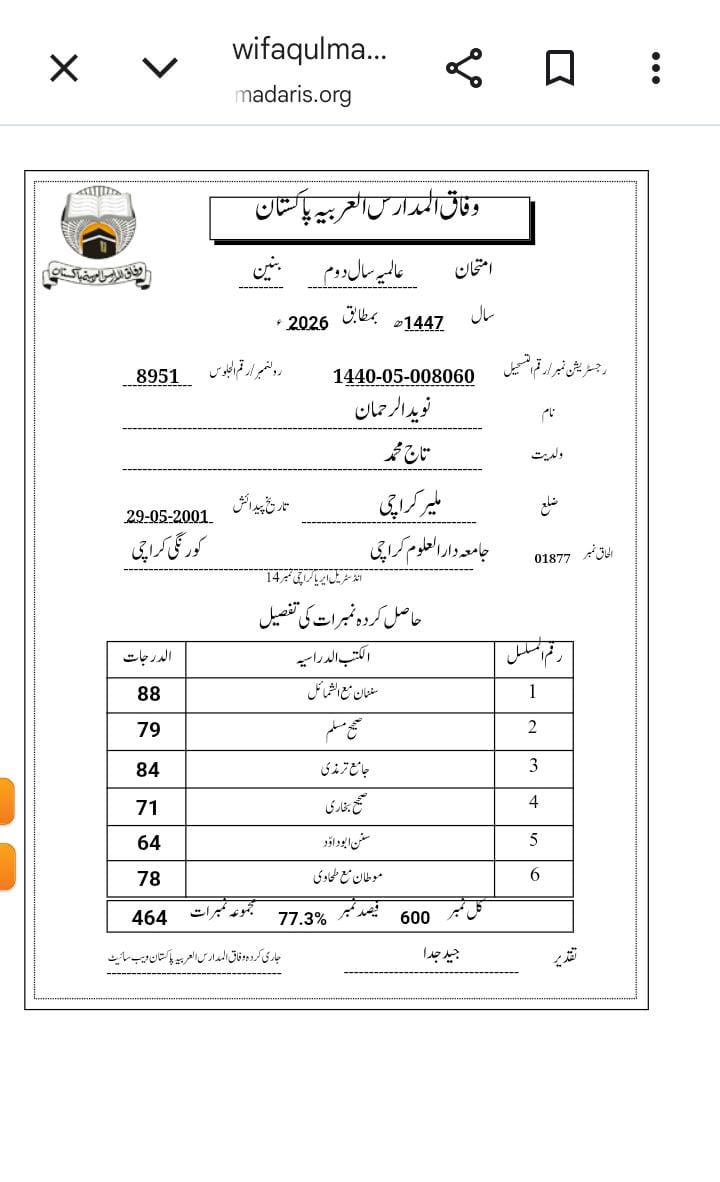 wifaqulma...
madaris.org
وفاق المدارس العربیہ پاکستان
وفاق المدارس العربیہ پاکستان
امتحان عالمیہ سال دوم بنین
سال 1447ھ بمطابق 2026ء
رجسٹریشن نمبر/رقم التسجیل 1440-05-008060 رولنمبر/رقم الجلوس 8951
نام نوید الرحمان
ولدیت تاج محمد
ضلع ملیر کراچی تاریخ پیدائش 29-05-2001
الحاق نمبر 01877 جامعہ دارالعلوم کراچی کورنگی کراچی
انڈسٹریل ایریا کراچی نمبر 14
حاصل کردہ نمبرات کی تفصیل
رقم المسلسل الکتب الدراسیہ الدرجات
1 سننان مع الشمائل 88
2 صحیح مسلم 79
3 جامع ترمذی 84
4 صحیح بخاری 71
5 سنن ابوداؤد 64
6 موطان مع طحاوی 78
کل نمبر 600 فیصد نمبر 77.3% مجموعہ نمبرات 464
تقدیر جید جدا جاری کردہ وفاق المدارس العربیہ پاکستان ویب سائیٹ